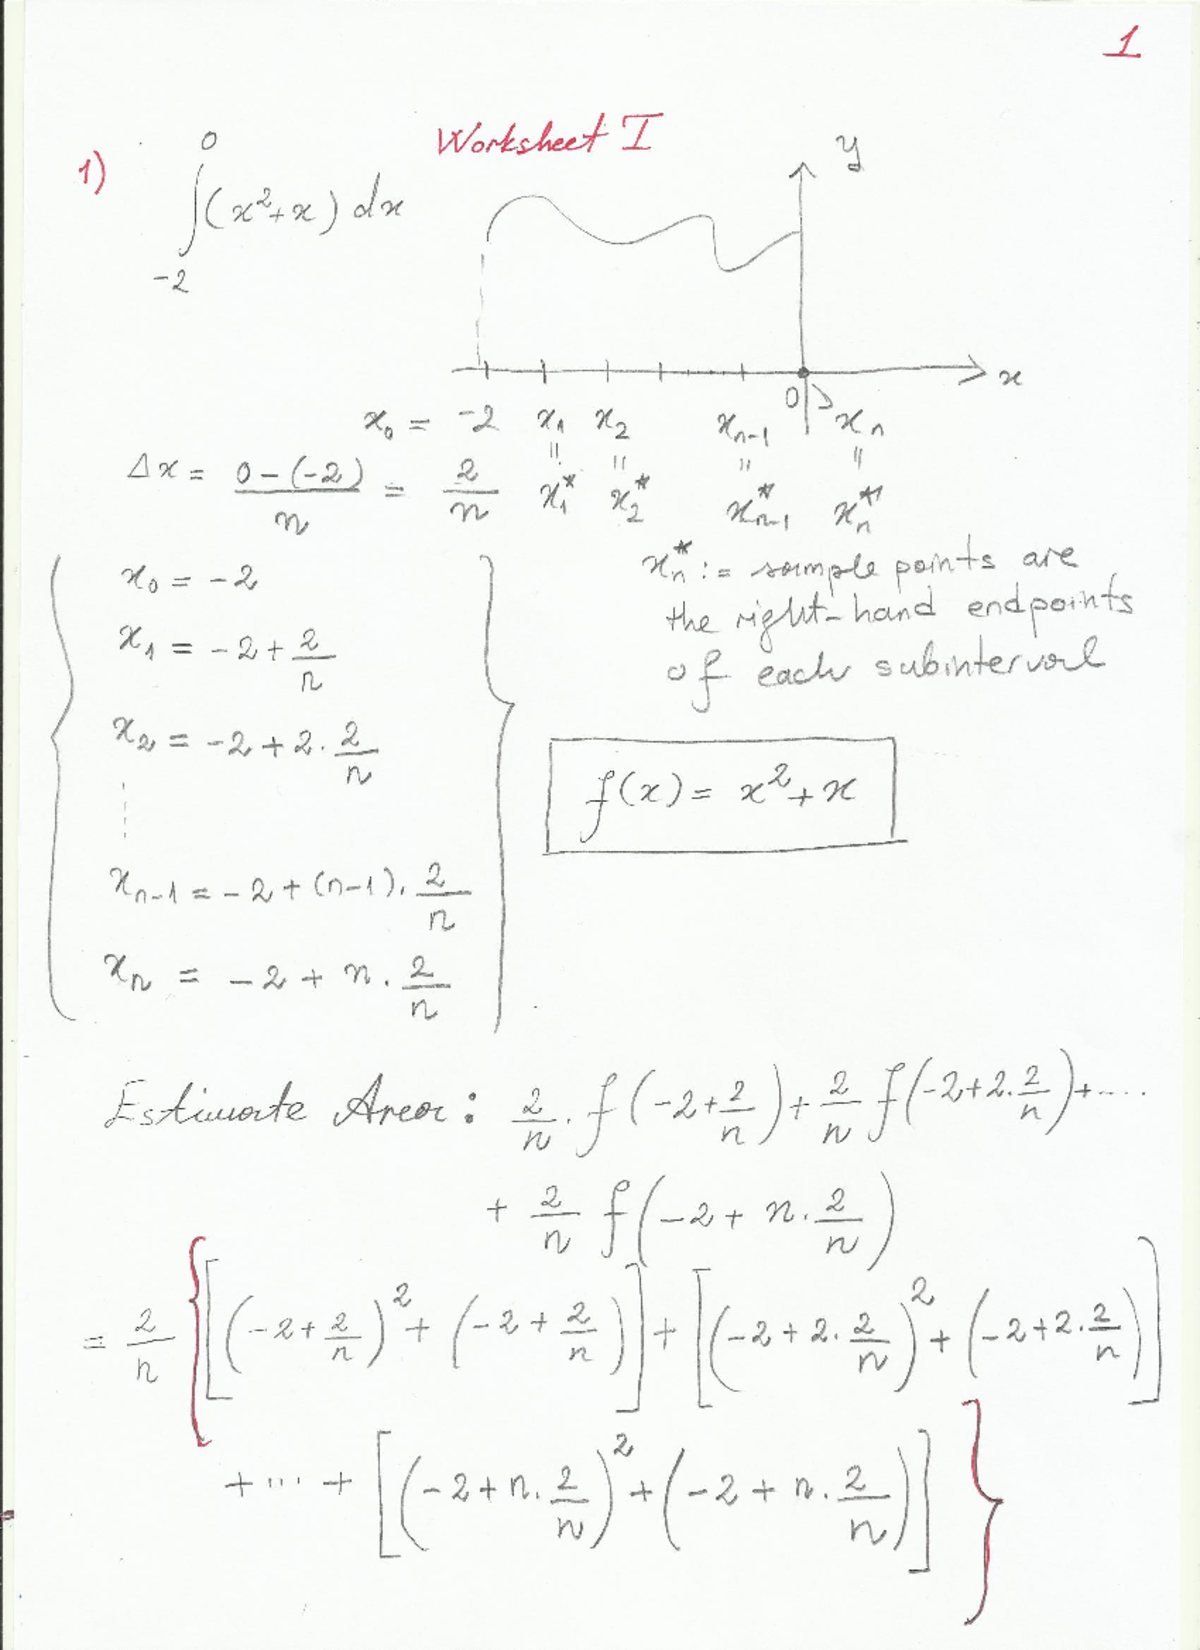 1
Worksheet I
1) ∫₋₂⁰ (x²+x) dx
y
x
0
x₀ = -2 x₁ x₂ xₙ₋₁ xₙ
= = = =
x₁* x₂* xₙ₋₁* xₙ*
Δx = (0-(-2))/n = 2/n
xₙ* := sample points are
the right-hand endpoints
of each subinterval
x₀ = -2
x₁ = -2 + 2/n
x₂ = -2 + 2 · 2/n
xₙ₋₁ = -2 + (n-1) · 2/n
xₙ = -2 + n · 2/n
f(x) = x² + x
Estimate Area: 2/n · f(-2 + 2/n) + 2/n f(-2 + 2 · 2/n) + ....
+ 2/n f(-2 + n · 2/n)
= 2/n {[(-2 + 2/n)² + (-2 + 2/n)] + [(-2 + 2 · 2/n)² + (-2 + 2 · 2/n)]
+ ... + [(-2 + n · 2/n)² + (-2 + n · 2/n)]}